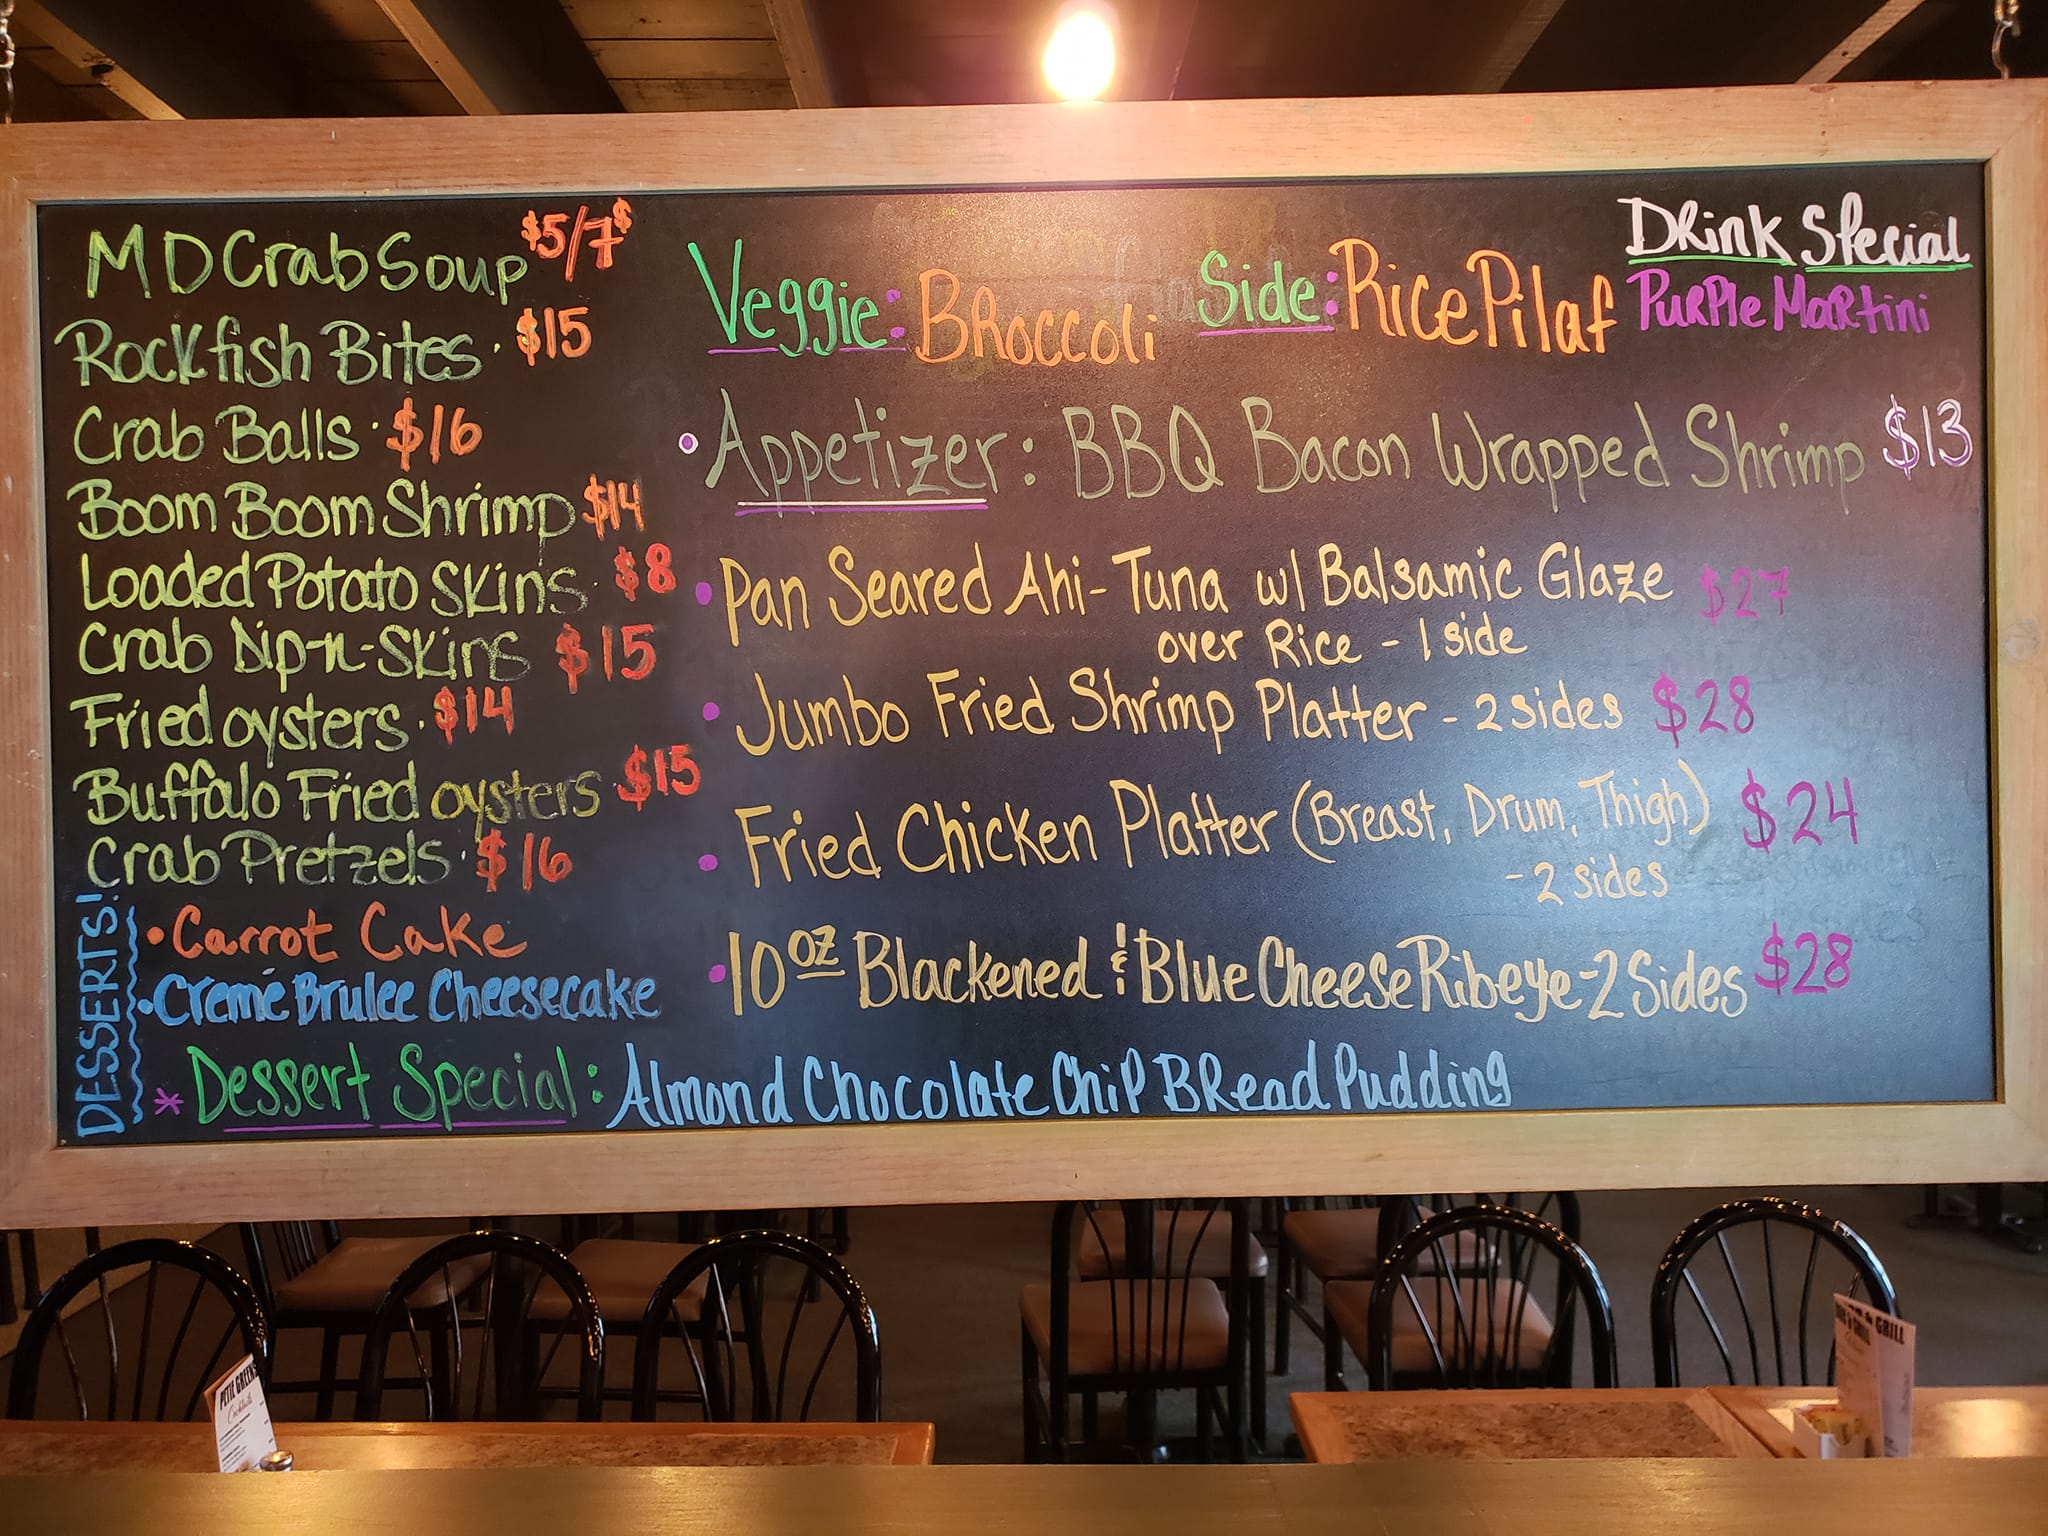 MD Crab Soup $5/7$
Rockfish Bites · $15
Crab Balls · $16
Boom Boom Shrimp $14
Loaded Potato Skins · $8
Crab Dip-n-Skins $15
Fried oysters · $14
Buffalo Fried oysters $15
Crab Pretzels · $16
DESSERTS!
• Carrot Cake
• Cremé Brulee Cheesecake
* Dessert Special: Almond Chocolate Chip Bread Pudding
Veggie: Broccoli
Side: Rice Pilaf
Drink Special
Purple Martini
• Appetizer: BBQ Bacon Wrapped Shrimp $13
• Pan Seared Ahi-Tuna w/ Balsamic Glaze $27
over Rice - 1 side
• Jumbo Fried Shrimp Platter - 2 sides $28
• Fried Chicken Platter (Breast, Drum, Thigh) $24
- 2 sides
• 10oz Blackened & Blue Cheese Ribeye - 2 Sides $28
Cocktails
& GRILL